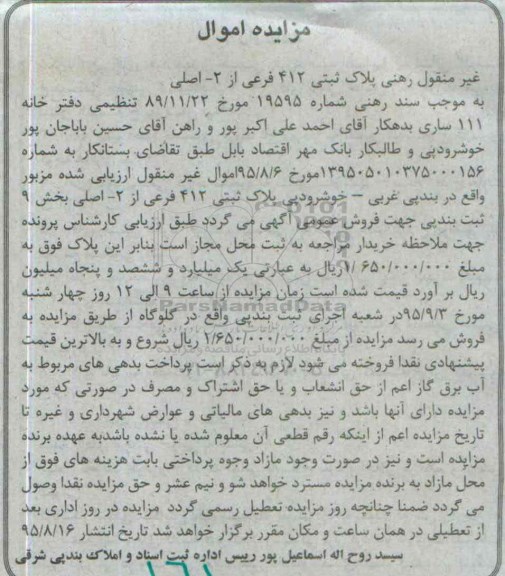 مزایده اموال
غیر منقول رهنی پلاک ثبتی ۴۱۲ فرعی از ۲- اصلی
به موجب سند رهنی شماره ۱۹۵۹۵ مورخ ۸۹/۱۱/۲۲ تنظیمی دفتر خانه
۱۱۱ ساری بدهکار آقای احمد علی اکبر پور و راهن آقای حسین باباجان پور
خوشرودپی و طالبکار بانک مهر اقتصاد بابل طبق تقاضای بستانکار به شماره
۱۳۹۵۰۵۰۱۰۳۷۵۰۰۰۱۵۶مورخ ۹۵/۸/۶اموال غیر منقول ارزیابی شده مزبور
واقع در بندپی غربی – خوشرودپی پلاک ثبتی ۴۱۲ فرعی از ۲- اصلی بخش ۹
ثبت بندپی جهت فروش عمومی آگهی می گردد طبق ارزیابی کارشناس پرونده
جهت ملاحظه خریدار مراجعه به ثبت محل مجاز است بنابر این پلاک فوق به
مبلغ ۱/۶۵۰/۰۰۰/۰۰۰ریال به عبارتی یک میلیارد و ششصد و پنجاه میلیون
ریال بر آورد قیمت شده است زمان مزایده از ساعت ۹ الی ۱۲ روز چهار شنبه
مورخ ۹۵/۹/۳در شعبه اجرای ثبت بندپی واقع در گلوگاه از طریق مزایده به
فروش می رسد مزایده از مبلغ ۱/۶۵۰/۰۰۰/۰۰۰ ریال شروع و به بالاترین قیمت
پیشنهادی نقدا فروخته می شود لازم به ذکر است پرداخت بدهی های مربوط به
آب برق گاز اعم از حق انشعاب و یا حق اشتراک و مصرف در صورتی که مورد
مزایده دارای آنها باشد و نیز بدهی های مالیاتی و عوارض شهرداری و غیره تا
تاریخ مزایده اعم از اینکه رقم قطعی آن معلوم شده یا نشده باشدبه عهده برنده
مزایده است و نیز در صورت وجود مازاد وجوه پرداختی بابت هزینه های فوق از
محل مازاد به برنده مزایده مسترد خواهد شو و نیم عشر و حق مزایده نقدا وصول
می گردد ضمنا چنانچه روز مزایده تعطیل رسمی گردد مزایده در روز اداری بعد
از تعطیلی در همان ساعت و مکان مقرر برگزار خواهد شد تاریخ انتشار ۹۵/۸/۱۶
سیسد روح اله اسماعیل پور رییس اداره ثبت اسناد و املاک بندپی شرقی
ParsNamadData